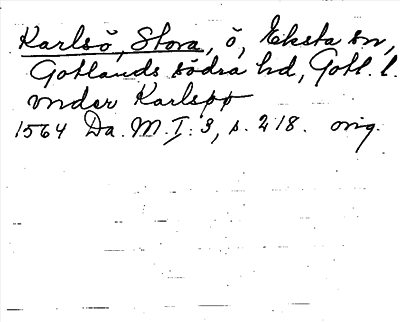 Karlsö, Stora, ö, Eksta sn,
Gotlands södra hd, Gotl. l.
vnder Karlspp
1564 Da. M. I: 3, s. 218. orig.